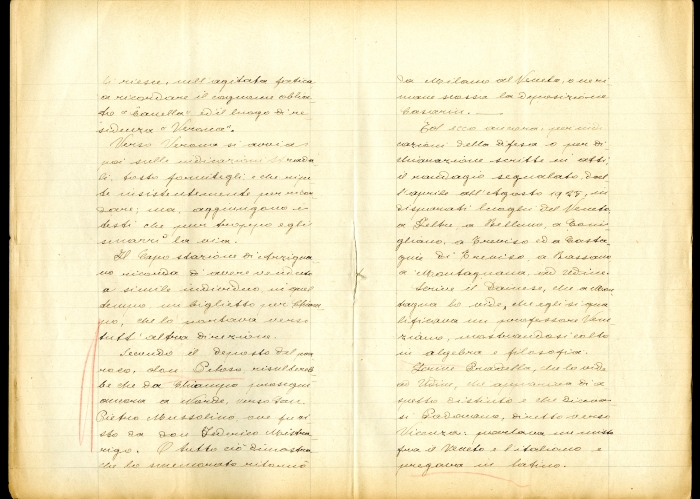 li riesce, nell'agitata fatica
a ricordare il cognome oblia-
to "Canella" ed il luogo di re-
sidenza "Verona".
Verso Verona si avvia
poi sulle indicazioni strada
li, tosto fornitegli e che rice
ve insistentemente per ricor
dare; ma, aggiungono i
testi che pur troppo egli
smarrì la via.
Il Capo stazione di Arzigna
no ricorda di avere venduto
a simile individuo in quel
torno, un biglietto per Chiam
po, che lo portava verso
tutt'altra direzione.
Secondo il deposto del par
roco, don Peloso risultereb
be che da Chiampo proseguì
ancora a Nord, verso San
Pietro Mussolino, ove fu vi
sto da don Federico Mistro
rigo. E tutto ciò dimostra
che lo smemorato ritornò
da Milano al Veneto, o ne ri
mane scossa la deposizione
Casarin. —
Ed ecco ancora, per indi
cazioni della difesa o per di
chiarazione scritte in atti,
il randagio segnalato, dal
l'aprile all'Agosto 1925, in
disparati luoghi del Veneto,
a Feltre, a Belluno, a Cone
gliano, a Treviso ed a Casta
gnè di Treviso, a Bassano
a Montagnana, ed Udine.
Scrive il Danese, che a Mon
tagna lo vide, che egli si qua
lificava un professore Vene
ziano, mostrandosi colto
in algebra e filosofia.
che lo vide
ad Udine, che appariva di a
spetto distinto e che diceva
si Padovano, diretto verso
Vicenza: parlava un misto
fra il Veneto e l'italiano e
pregava in latino.